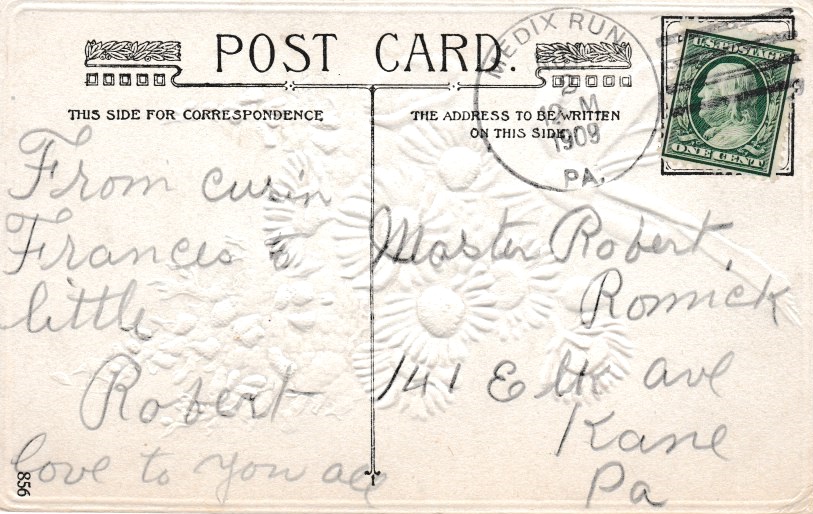 POST CARD.
THIS SIDE FOR CORRESPONDENCE
THE ADDRESS TO BE WRITTEN
ON THIS SIDE.
MEDIX RUN
2
12 M
1909
PA.
U.S. POSTAGE
ONE CENT
From cusin
Frances &
little
Robert
love to you all
Master Robert
Romick
141 Elk ave
Kane
Pa
856